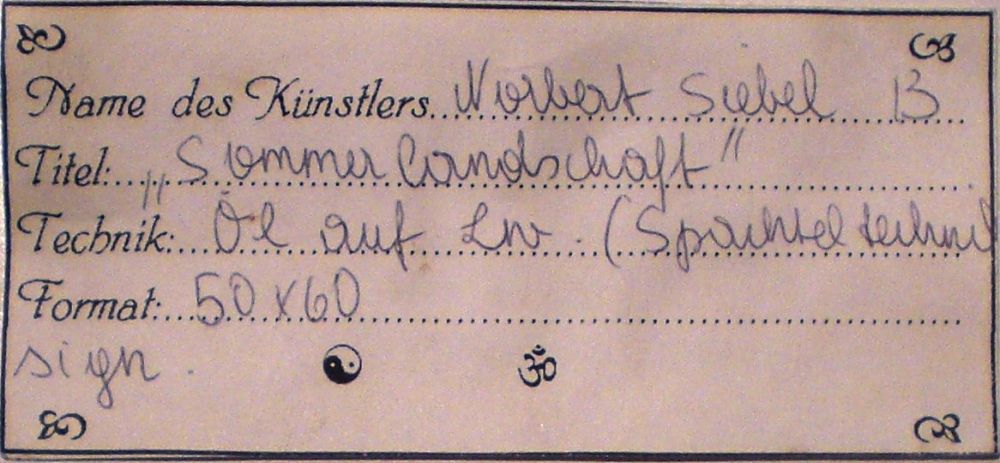 Name des Künstlers...Norbert Siebel 13
Titel:..."Sommerlandschaft"
Technik:...Öl auf Lw. (Spachteltechnik
Format:...50x60
sign.
ॐ